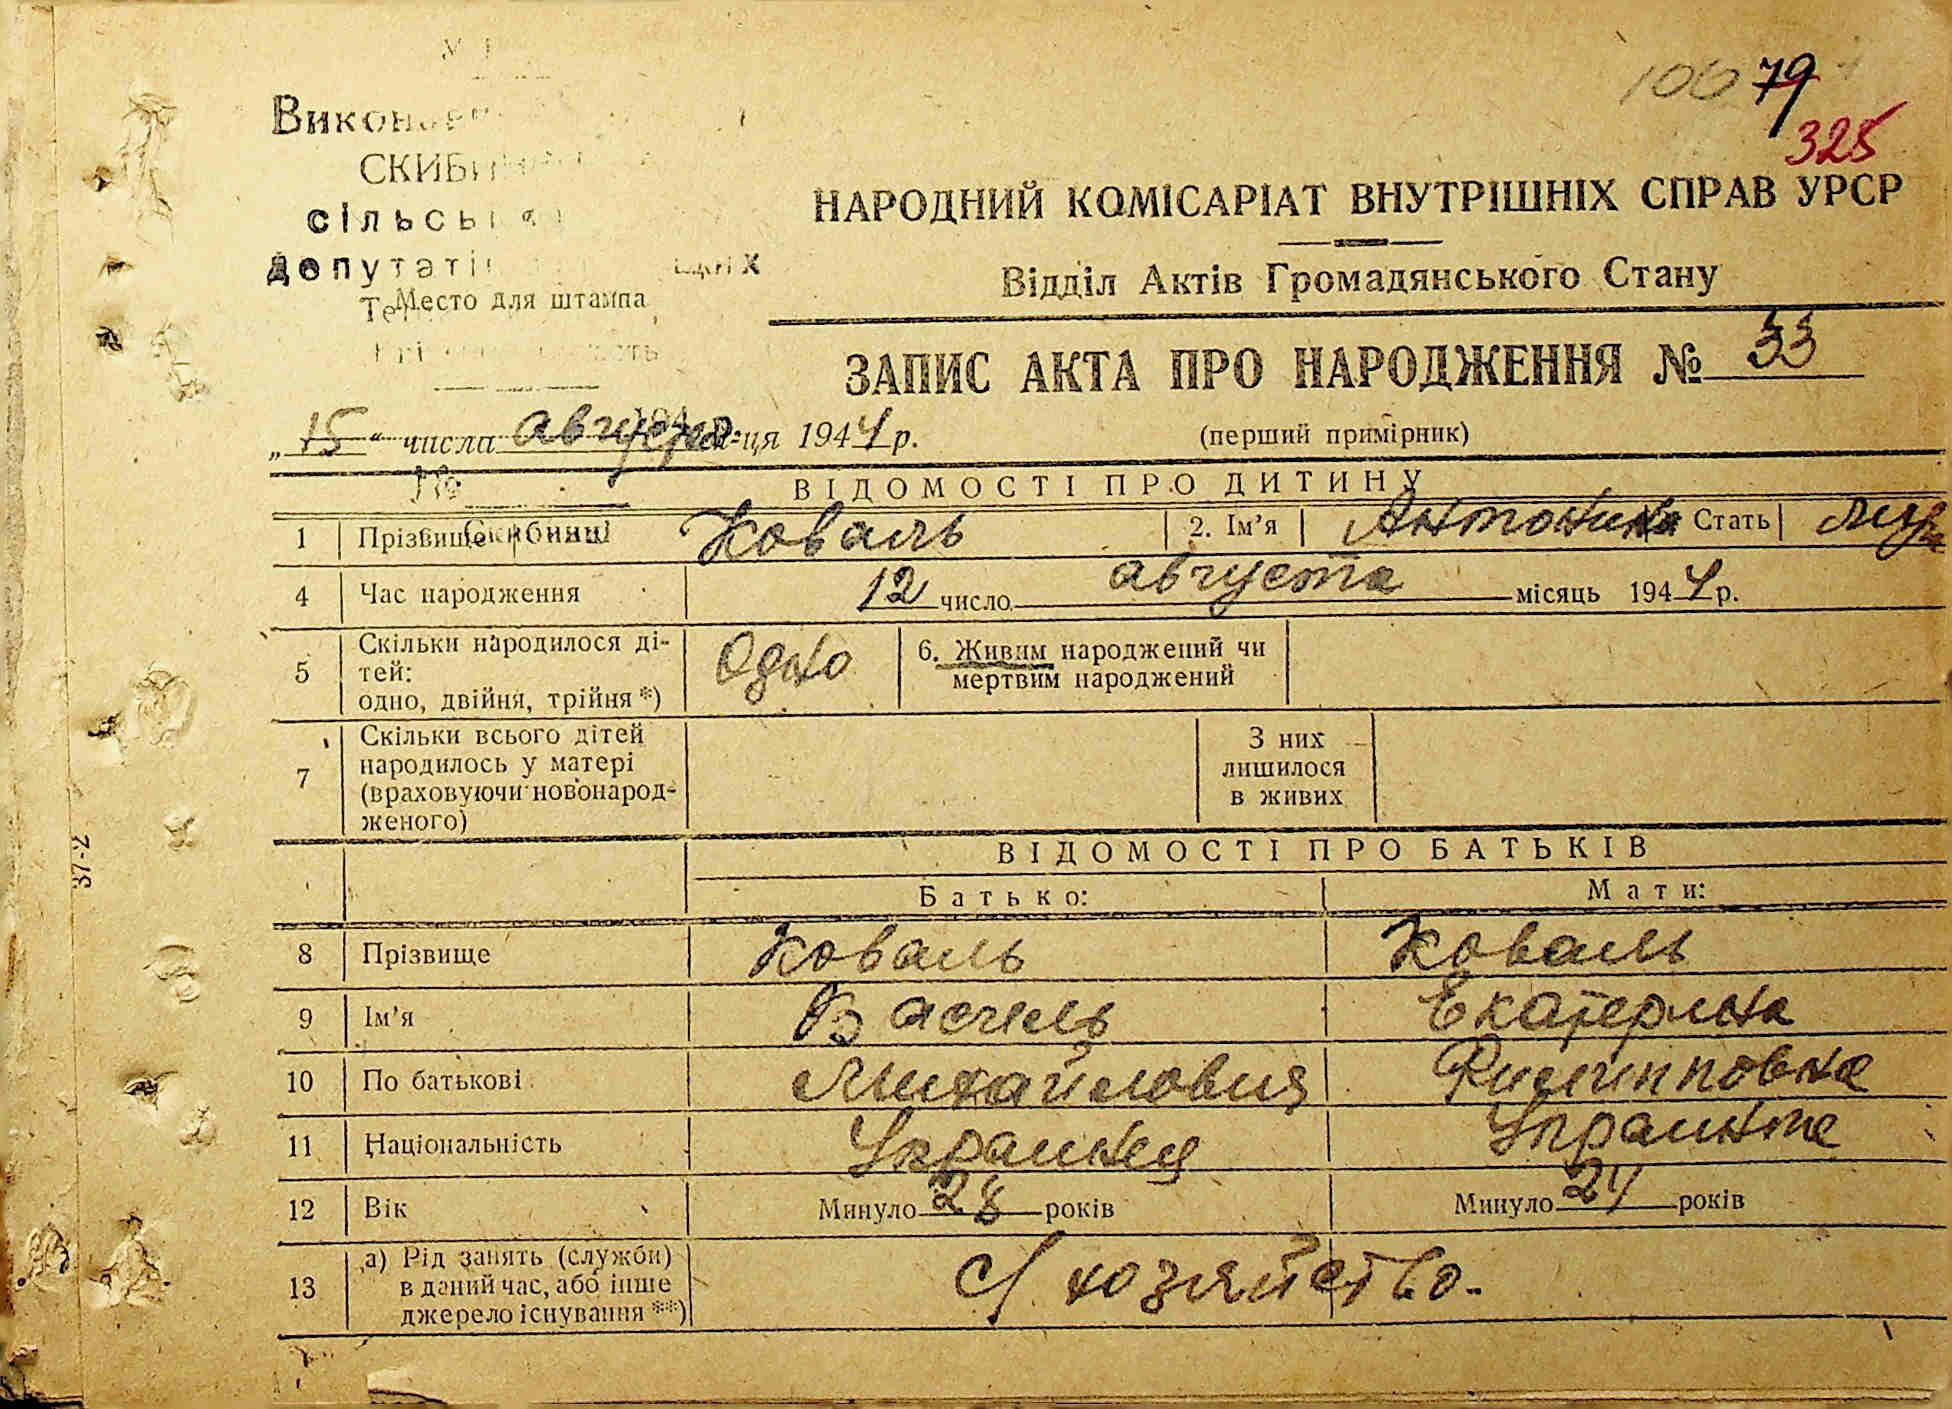 100 79
325
Виконав
СКИБИН
сільськ
депутаті
Место для штампа
Скибинці
НАРОДНИЙ КОМІСАРІАТ ВНУТРІШНІХ СПРАВ УРСР
Відділ Актів Громадянського Стану
ЗАПИС АКТА ПРО НАРОДЖЕННЯ № 33
„15“ числа августа м-ця 1944 р.
(перший примірник)
ВІДОМОСТІ ПРО ДИТИНУ
1 Прізвище Коваль 2. Ім’я Антонина Стать
4 Час народження 12 число августа місяць 1944 р.
5 Скільки народилося ді-
тей:
одно, двійня, трійня *) Одно 6. Живим народжений чи
мертвим народжений
7 Скільки всього дітей
народилось у матері
(враховуючи новонарод-
женого)
З них
лишилося
в живих
37-2
ВІДОМОСТІ ПРО БАТЬКІВ
Батько: Мати:
8 Прізвище Коваль Коваль
9 Ім’я Василь Екатерина
10 По батькові Михайлович Филипповна
11 Національність Украинец Украинка
12 Вік Минуло 28 років Минуло 24 років
13 а) Рід занять (служби)
в даний час, або інше
джерело існування **) с/хозяйство.